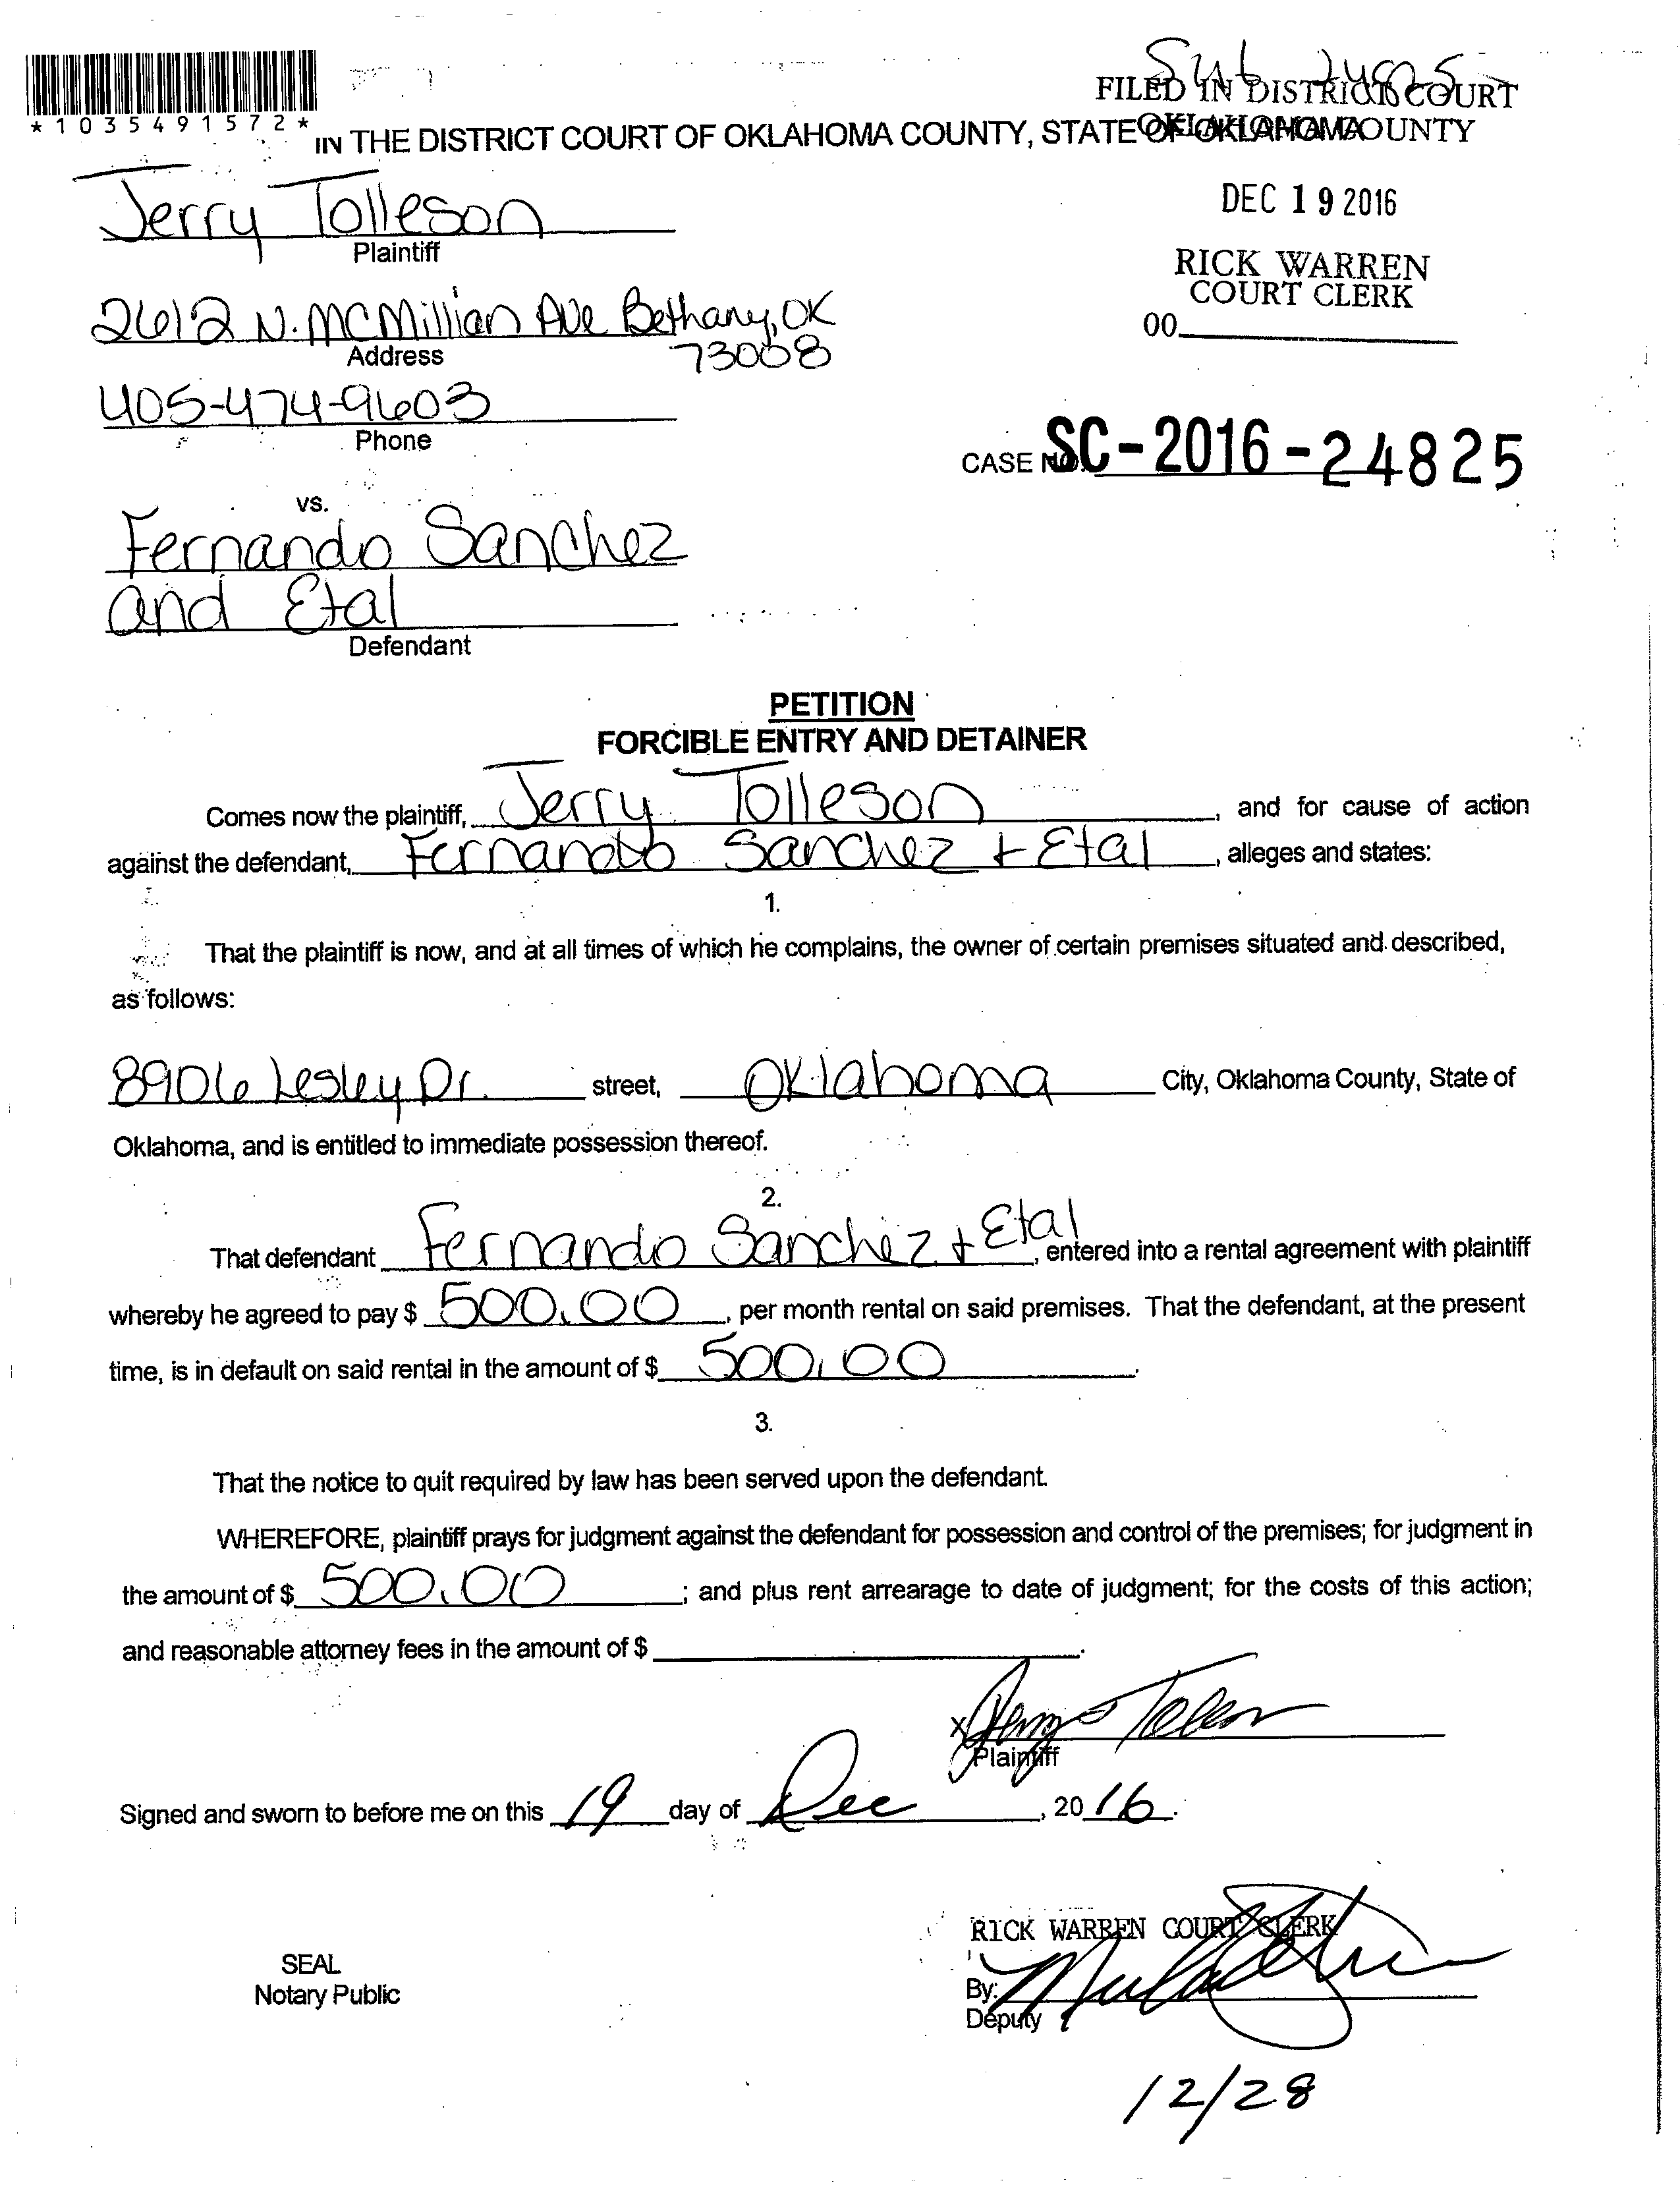 FILED IN DISTRICT COURT
OKLAHOMA COUNTY
*1035491572*
IN THE DISTRICT COURT OF OKLAHOMA COUNTY, STATE OF OKLAHOMA
Jerry Tolleson
Plaintiff
DEC 19 2016
RICK WARREN
COURT CLERK
00
2612 N. McMillian Ave Bethany, OK
73008
Address
405-474-9603
Phone
CASE NO. SC-2016-24825
vs.
Fernando Sanchez
and Etal
Defendant
PETITION
FORCIBLE ENTRY AND DETAINER
Comes now the plaintiff, Jerry Tolleson, and for cause of action
against the defendant, Fernando Sanchez + Etal, alleges and states:
1.
That the plaintiff is now, and at all times of which he complains, the owner of certain premises situated and described,
as follows:
8906 Lesley Dr. street, Oklahoma City, Oklahoma County, State of
Oklahoma, and is entitled to immediate possession thereof.
2.
That defendant Fernando Sanchez + Etal, entered into a rental agreement with plaintiff
whereby he agreed to pay $ 500.00, per month rental on said premises. That the defendant, at the present
time, is in default on said rental in the amount of $ 500.00.
3.
That the notice to quit required by law has been served upon the defendant.
WHEREFORE, plaintiff prays for judgment against the defendant for possession and control of the premises; for judgment in
the amount of $ 500.00; and plus rent arrearage to date of judgment; for the costs of this action;
and reasonable attorney fees in the amount of $ .
X
Plaintiff
Signed and sworn to before me on this 19 day of Dec, 20 16.
RICK WARREN COURT CLERK
SEAL
Notary Public
By:
Deputy
12/28